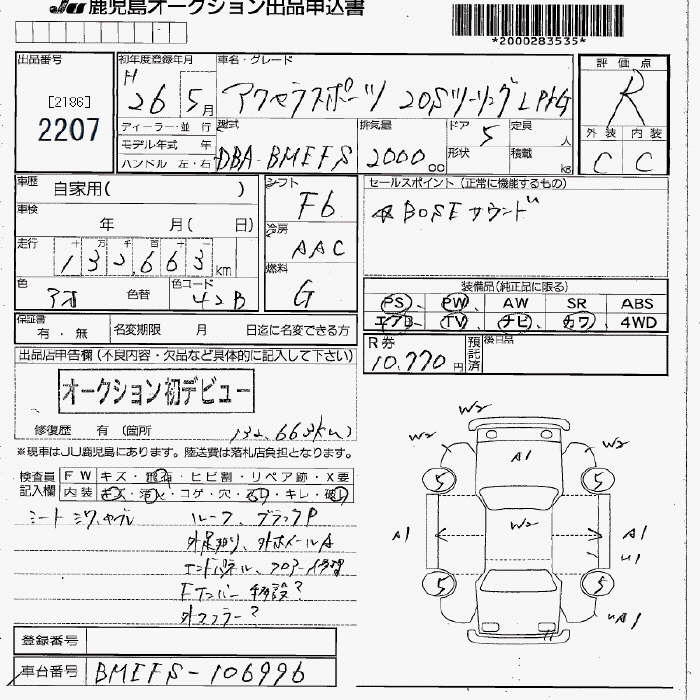 JU 鹿児島オークション出品申込書
*2000283535*
出品番号
[2186]
2207
初年度登録年月
H 26 5月
車名・グレード
アクセラスポーツ 20Sツーリング LPKG
評価点
R
外装 内装
C C
ディーラー・並行
モデル年式 年
ハンドル 左・右
型式
DBA-BMEFS
排気量
2000 cc
ドア 5
形状
定員 人
積載 KG
車歴 自家用( )
車検 年 月( 日)
走行 十 万 千 百 十 一
132,663 km
色 アオ 色替
色コード 42B
シフト F6
冷房 AAC
燃料 G
セールスポイント(正常に機能するもの)
BOSEサウンド
装備品(純正品に限る)
PS、PW、AW SR ABS
エアB TV、ナビ、カワ、4WD
保証書 有・無
名変期限 月 日迄に名変できる方
R券 10,770円
預託済
後日品
出品店申告欄(不良内容・欠品など具体的に記入して下さい)
オークション初デビュー
修復歴 有(箇所 132,663km)
※現車はJU鹿児島にあります。陸送費は落札店負担となります。
検査員記入欄
FW キズ・飛石・ヒビ割・リペア跡・X要
内装 キズ・汚れ・コゲ・穴・スレ・キレ・破れ
シート シワ、ヤブレ
ルーフ、ブラックP
外足廻り、外ホイールA
エンドパネル、フロアー修理
Fナンバー 移設?
外マフラー?
W2
W2 A1 W2
5 5
A1 W2 A1
U1
5 5
UA1
登録番号
車台番号 BMEFS-106996